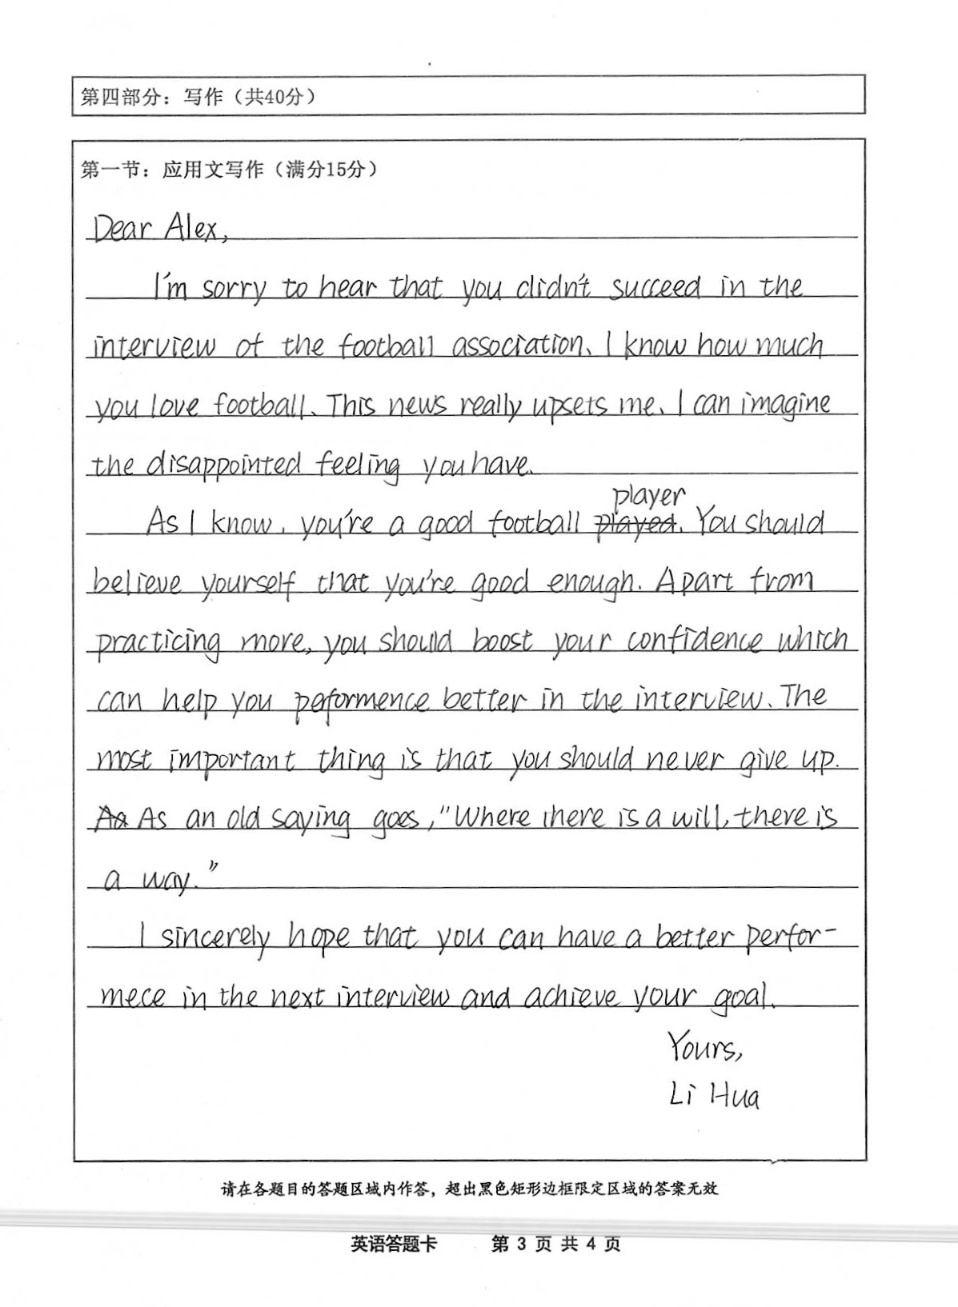 第四部分：写作（共40分）
第一节：应用文写作（满分15分）
Dear Alex,
I'm sorry to hear that you didn't succeed in the
interview of the football association. I know how much
you love football. This news really upsets me. I can imagine
the disappointed feeling you have.
player
As I know, you're a good football played. You should
believe yourself that you're good enough. Apart from
practicing more, you should boost your confidence which
can help you peformence better in the interview. The
most important thing is that you should never give up.
Aa As an old saying goes, "Where there is a will, there is
a way."
I sincerely hope that you can have a better perfor-
mece in the next interview and achieve your goal.
Yours,
Li Hua
请在各题目的答题区域内作答，超出黑色矩形边框限定区域的答案无效
英语答题卡 第 3 页 共 4 页